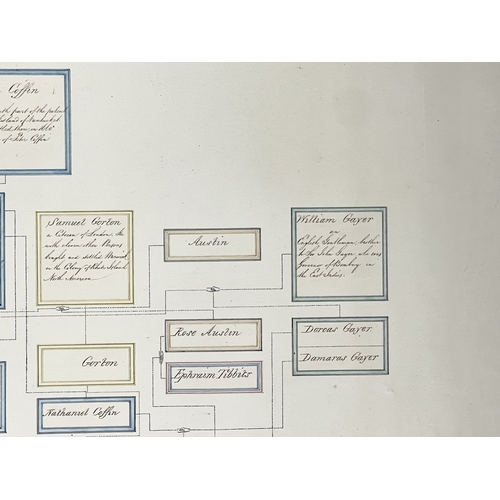 Coffin
the part of the patent
Island of Nantucket
settled there in 1660
of Peter Coffin
Samuel Gorton
a Citizen of London. He
with eleven other Persons
bought and settled Warwick
in the Colony of Rhode Island
North America
Austin
William Gayer
an
English Gentleman, brother
to Sir John Gayer who was
Governor of Bombay in
the East Indies.
Rose Austin
Dorcas Gayer
Gorton
Ephraim Tibbits
Damaras Gayer
Nathaniel Coffin